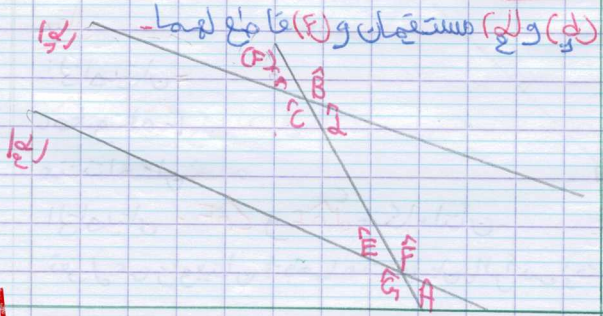 (d₁) و (d₂) مستقيمان و (F) قاطع لهما.
(d₁)
(F)
B̂
Ĉ
(d₂)
Ê
F̂
Ĝ
Â